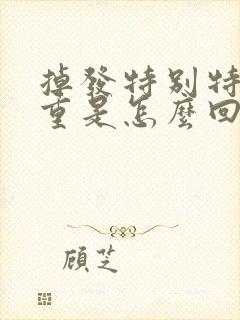 掉發特别特
重是怎麼回
顧芝